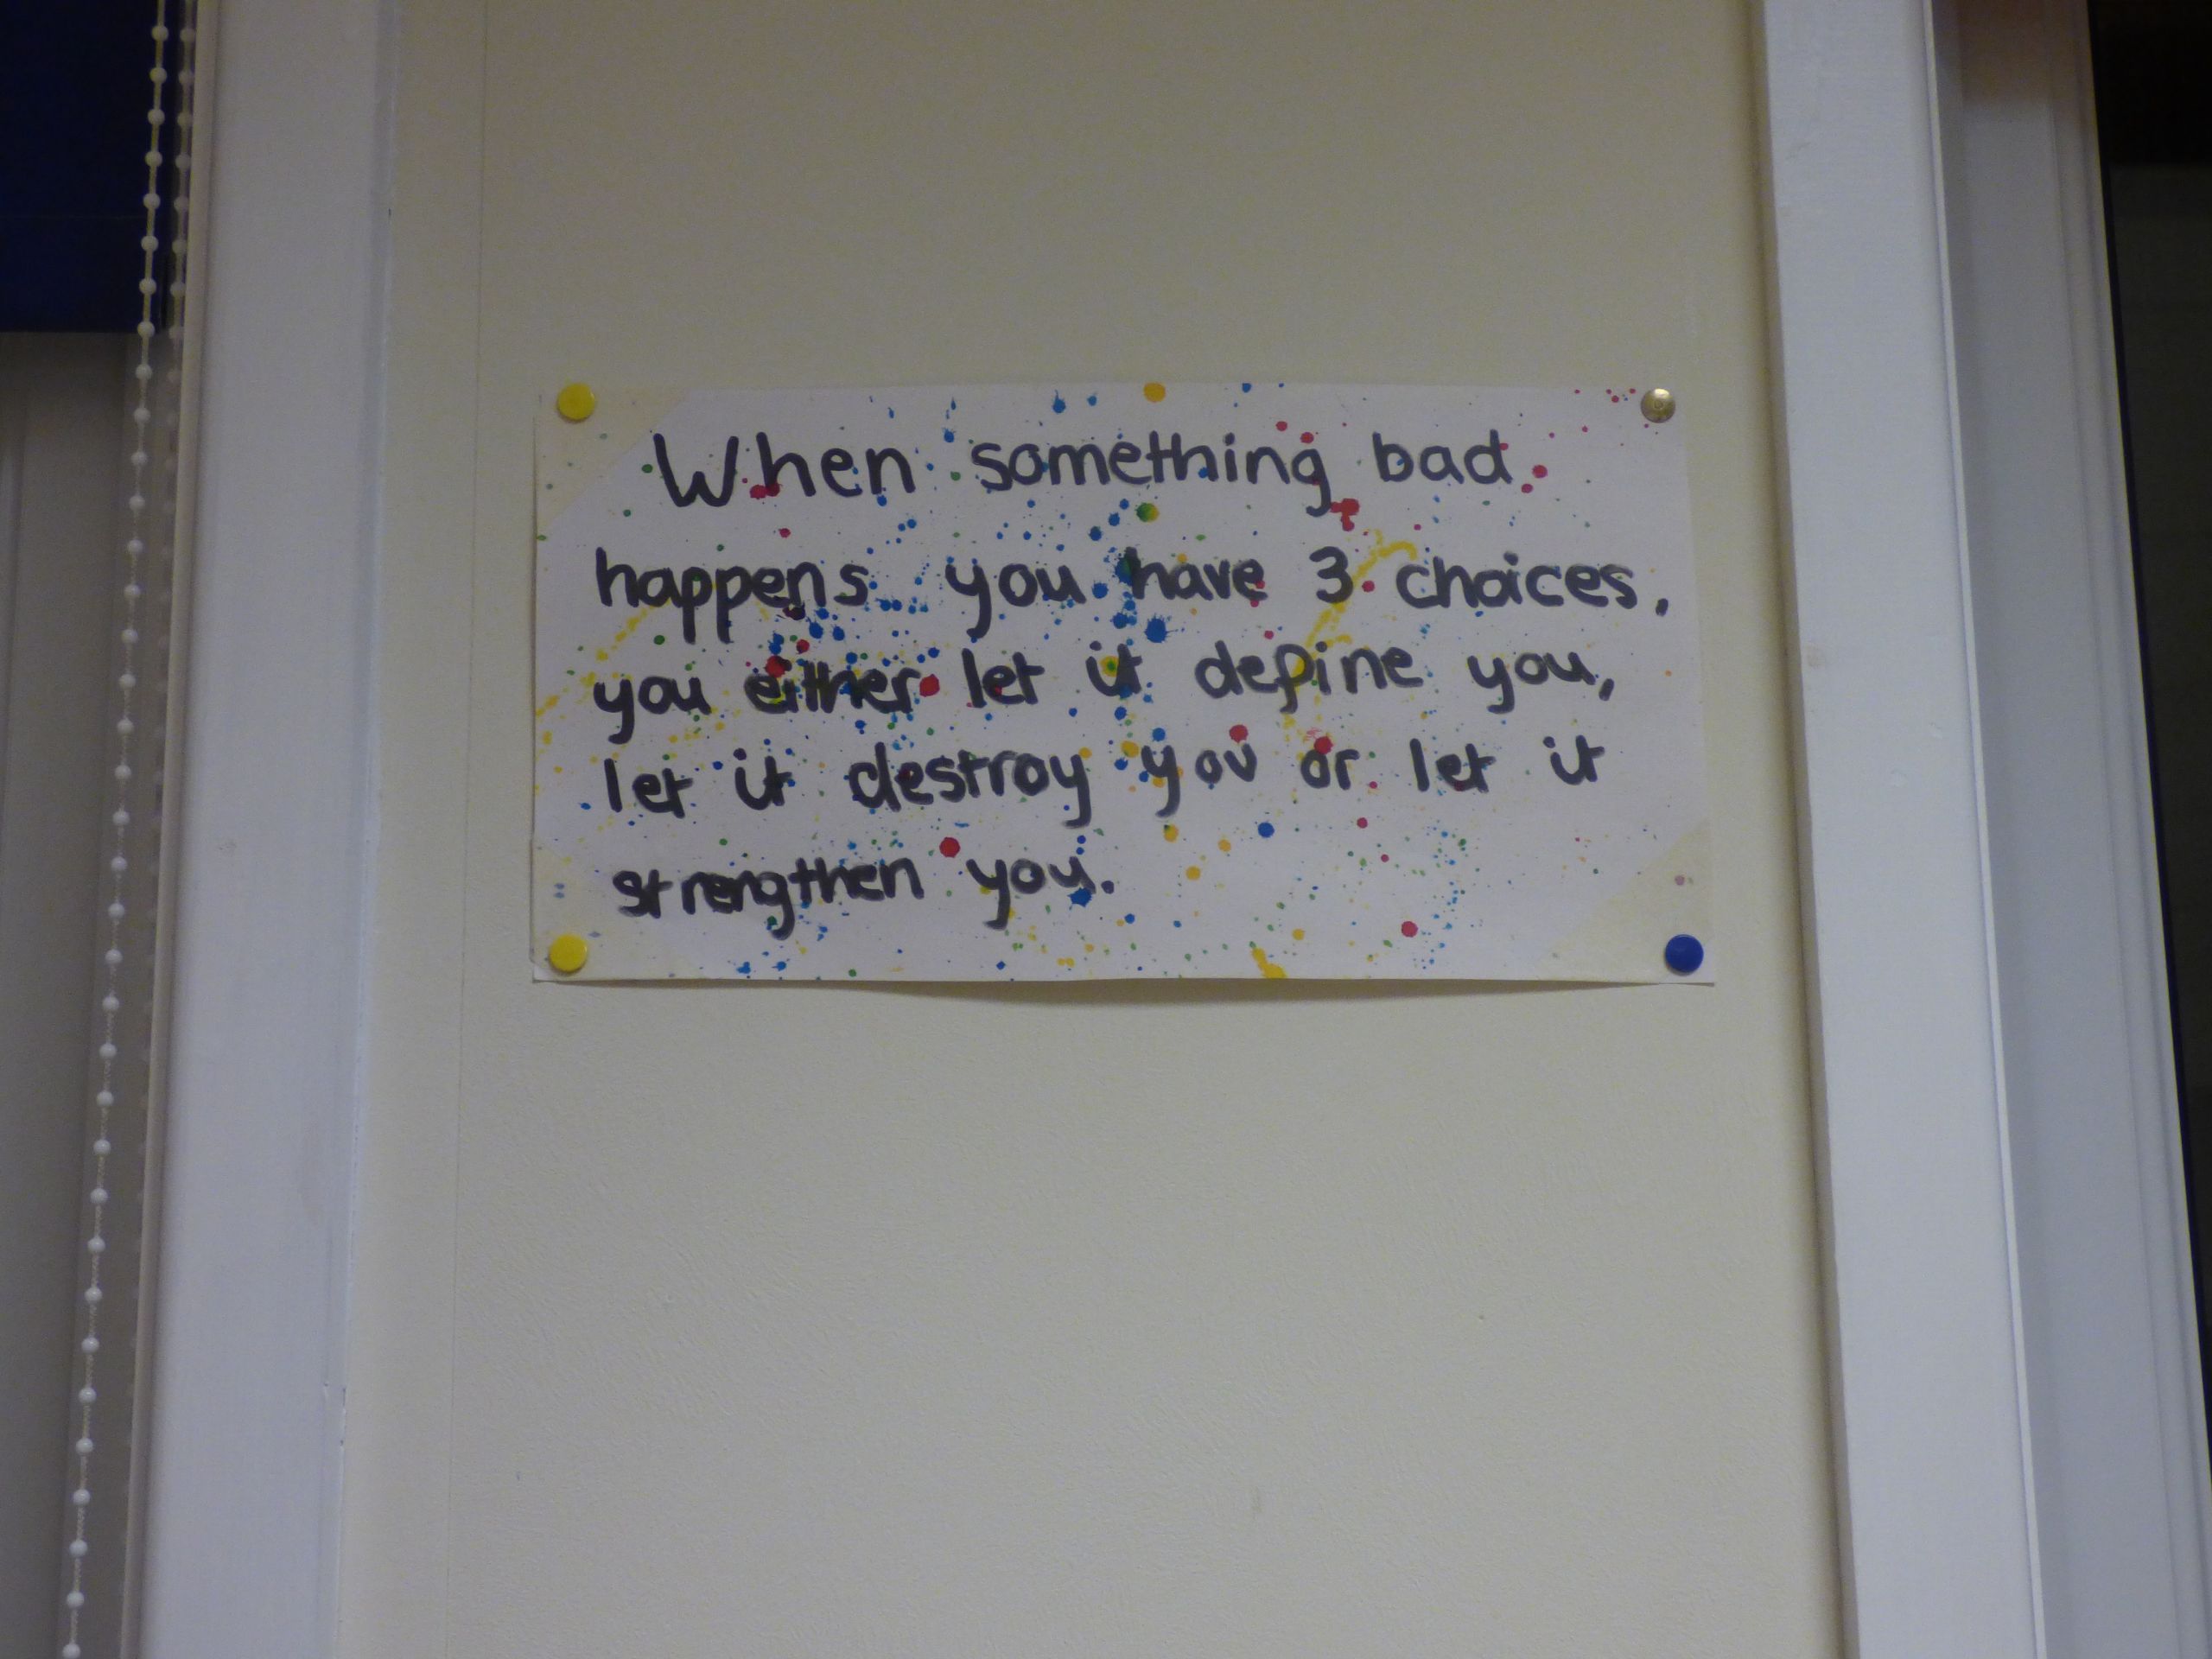 When something bad
happens you have 3 choices,
you either let it define you,
let it destroy you or let it
strengthen you.